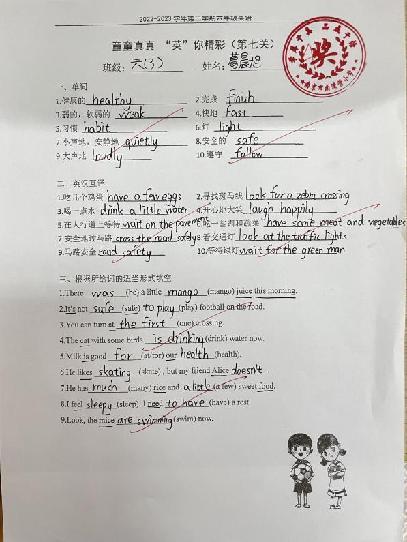 2022-2023学年第二学期六年级英语
童童真真 “英”你精彩（第七关）
班级: 六(3) 姓名:
奖
一、单词
1.健康的 healthy 2.完成 finish
3.弱的，软弱的 weak 4.快地 fast
5.习惯 habit 6.灯 light
7.小声地，安静地 quietly 8.安全的 safe
9.大声地 loudly 10.遵守 follow
二、英汉互译
1.吃几个鸡蛋 have a few eggs 2.寻找斑马线 look for a zebra crossing
3.喝一点水 drink a little water 4.开心地大笑 laugh happily
5.在人行道上等待 wait on the pavement 6.吃一些肉和蔬菜 have some meat and vegetables
7.安全地过马路 cross the road safely 8.看交通灯 look at the traffic lights
9.马路安全 road safety 10.等待绿灯 wait for the green man
三、根据所给词的适当形式填空
1.There was (be) a little mango (mango) juice this morning.
2.It's not safe (safe) to play (play) football on the road.
3.You can turn at the first (one) crossing.
4.The cat with some birds is drinking (drink) water now.
5.Milk is good for (at/for) our health (health).
6.He likes skating (skate), but my friend Alice doesn't
7.He has much (many) rice and a little (a few) sweet food.
8.I feel sleepy (sleep). I need to have (have) a rest.
9.Look, the mice are swimming (swim) now.